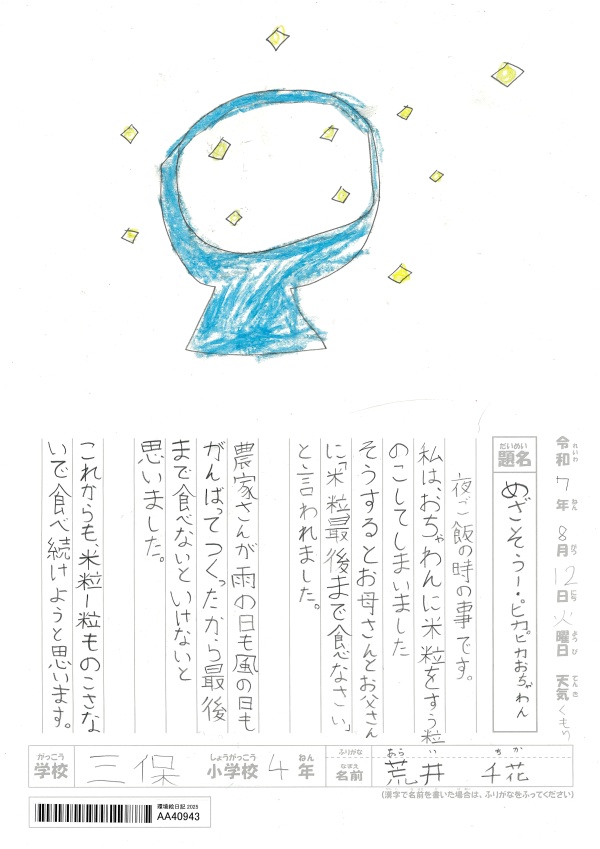 令和7年8月12日火曜日 天気くもり
れいわ ねん がつ にち ようび てんき
だいめい
題名 めざそうー!ピカピカおちゃわん
夜ご飯の時の事です。
私は、おちゃわんに米粒をすう粒
のこしてしまいました
そうするとお母さんとお父さん
に「米粒最後まで食べなさい」
と言われました。
農家さんが雨の日も風の日も
がんばってつくったから最後
まで食べないといけないと
思いました。
これからも、米粒一粒ものこさな
いで食べ続けようと思います。
がっこう しょうがっこう ねん ふりがな あらい ちか
学校 三保 小学校 4年 なまえ 名前 荒井 千花
(漢字で名前を書いた場合は、ふりがなをふってください)
環境絵日記 2025
AA40943